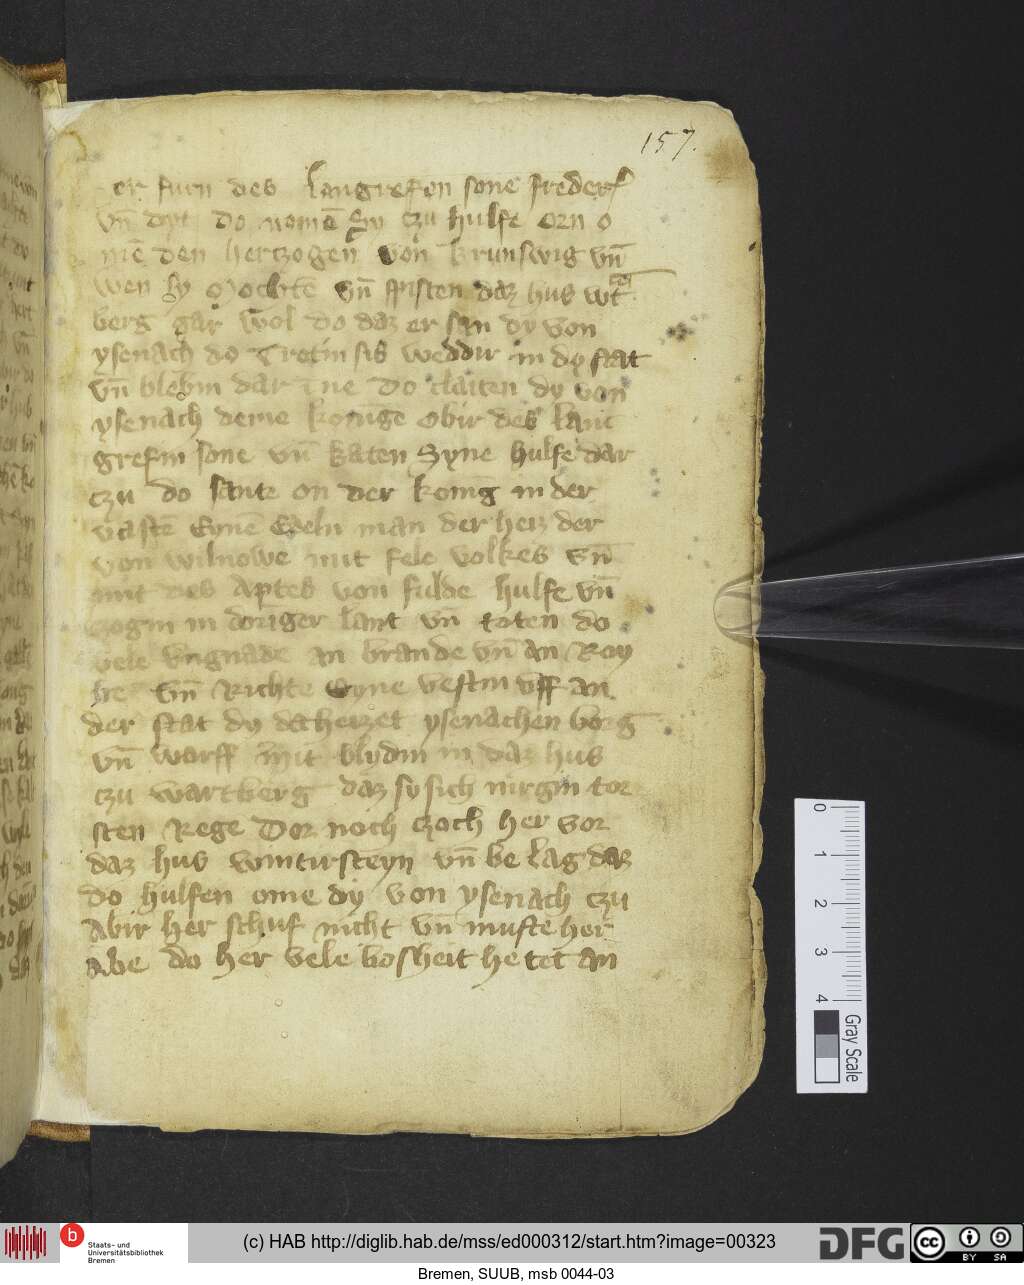 157.
er furn des langrefen sone frederſ
vn̄ dyt do nomē Sy czu hulfe orn o
mē den hertzogen von brunswig vn̄
wen sy mochtē vn̄ spisten daz hus wt
berg gar wol do daz er san dy von
ysenach do tretin sis weddir in dy stat
vn̄ blebin dar Ine do claiten dy von
ysenach deme konige obir des lant
grefin sone vn̄ baten Syne hulfe dar
czu do sante on der konig in der
vastē Eynē Edeln man der heiz der
von wilnowe mit fele volkes vn̄
mit des Aptes von fulde hulfe vn̄
czogin in doringer lant vn̄ toten do
vele vngnade an brande vn̄ an Roy
be vn̄ Richte Eyne vestin vff an
der stat dy da heizet ysenachen borg
vn̄ worff mit blydin in daz hus
czu wartberg daz sy sich nirgin tor
sten Rege Dor noch czoch her vor
daz hus wintirsteyn vn̄ be lag daz
do hulfen ome dy von ysenach czu
Abir her schuf nicht vn̄ muste her
abe do her vele bosheit he tet an
0 1 2 3 4
Gray Scale
b
Staats- und
Universitätsbibliothek
Bremen
(c) HAB http://diglib.hab.de/mss/ed000312/start.htm?image=00323
DFG
cc BY SA
Bremen, SUUB, msb 0044-03